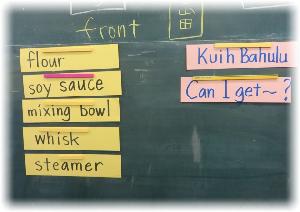 front
flour
soy sauce
mixing bowl
whisk
steamer
Kuih Bahulu
Can I get~?